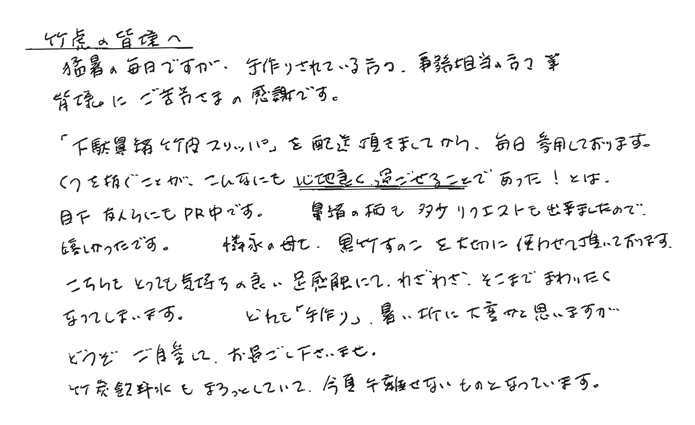 竹虎の皆様へ
猛暑の毎日ですが、手作りされている方々、事務担当の方々等
皆様に ご苦労さまの感謝です。
「下駄鼻緒竹皮スリッパ」を配送頂きましてから、毎日参用しております。
くつを抜ぐことが、こんなにも 心地良く過ごせることであった！とは、
目下 友人らにもPR中です。 鼻緒の柄も 多少リクエストも出来ましたので、
嬉しかったです。 の母も、黒竹すのこを大切に使わせて頂いております。
こちらも とっても気持ちの良い足感触にて、わざわざ、そこまで まわりたく
なってしまいます。 どれも「手作り」、暑い所に大変かと思いますが
どうぞ ご自愛して、お過ごし下さいませ。
竹炭飲料水も まろっとしていて、今夏手離せないものとなっています。